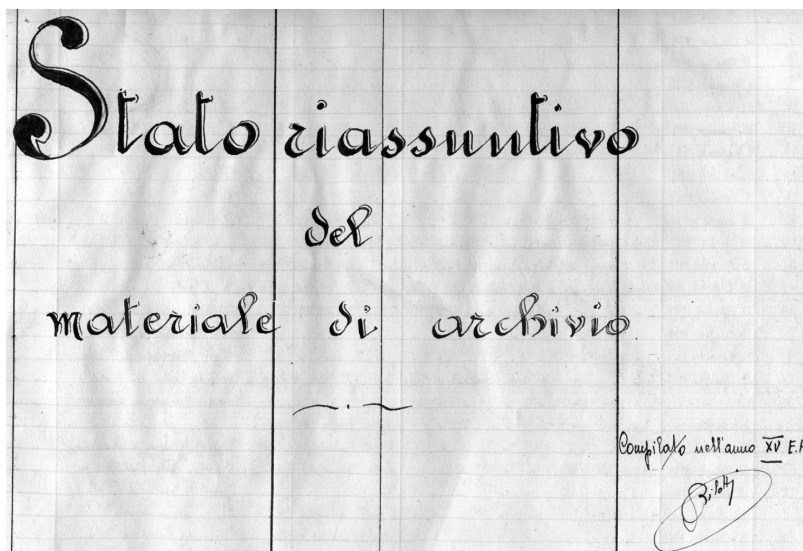 Stato riassuntivo
del
materiale di archivio
Compilato nell'anno XV E.F
Bilotti